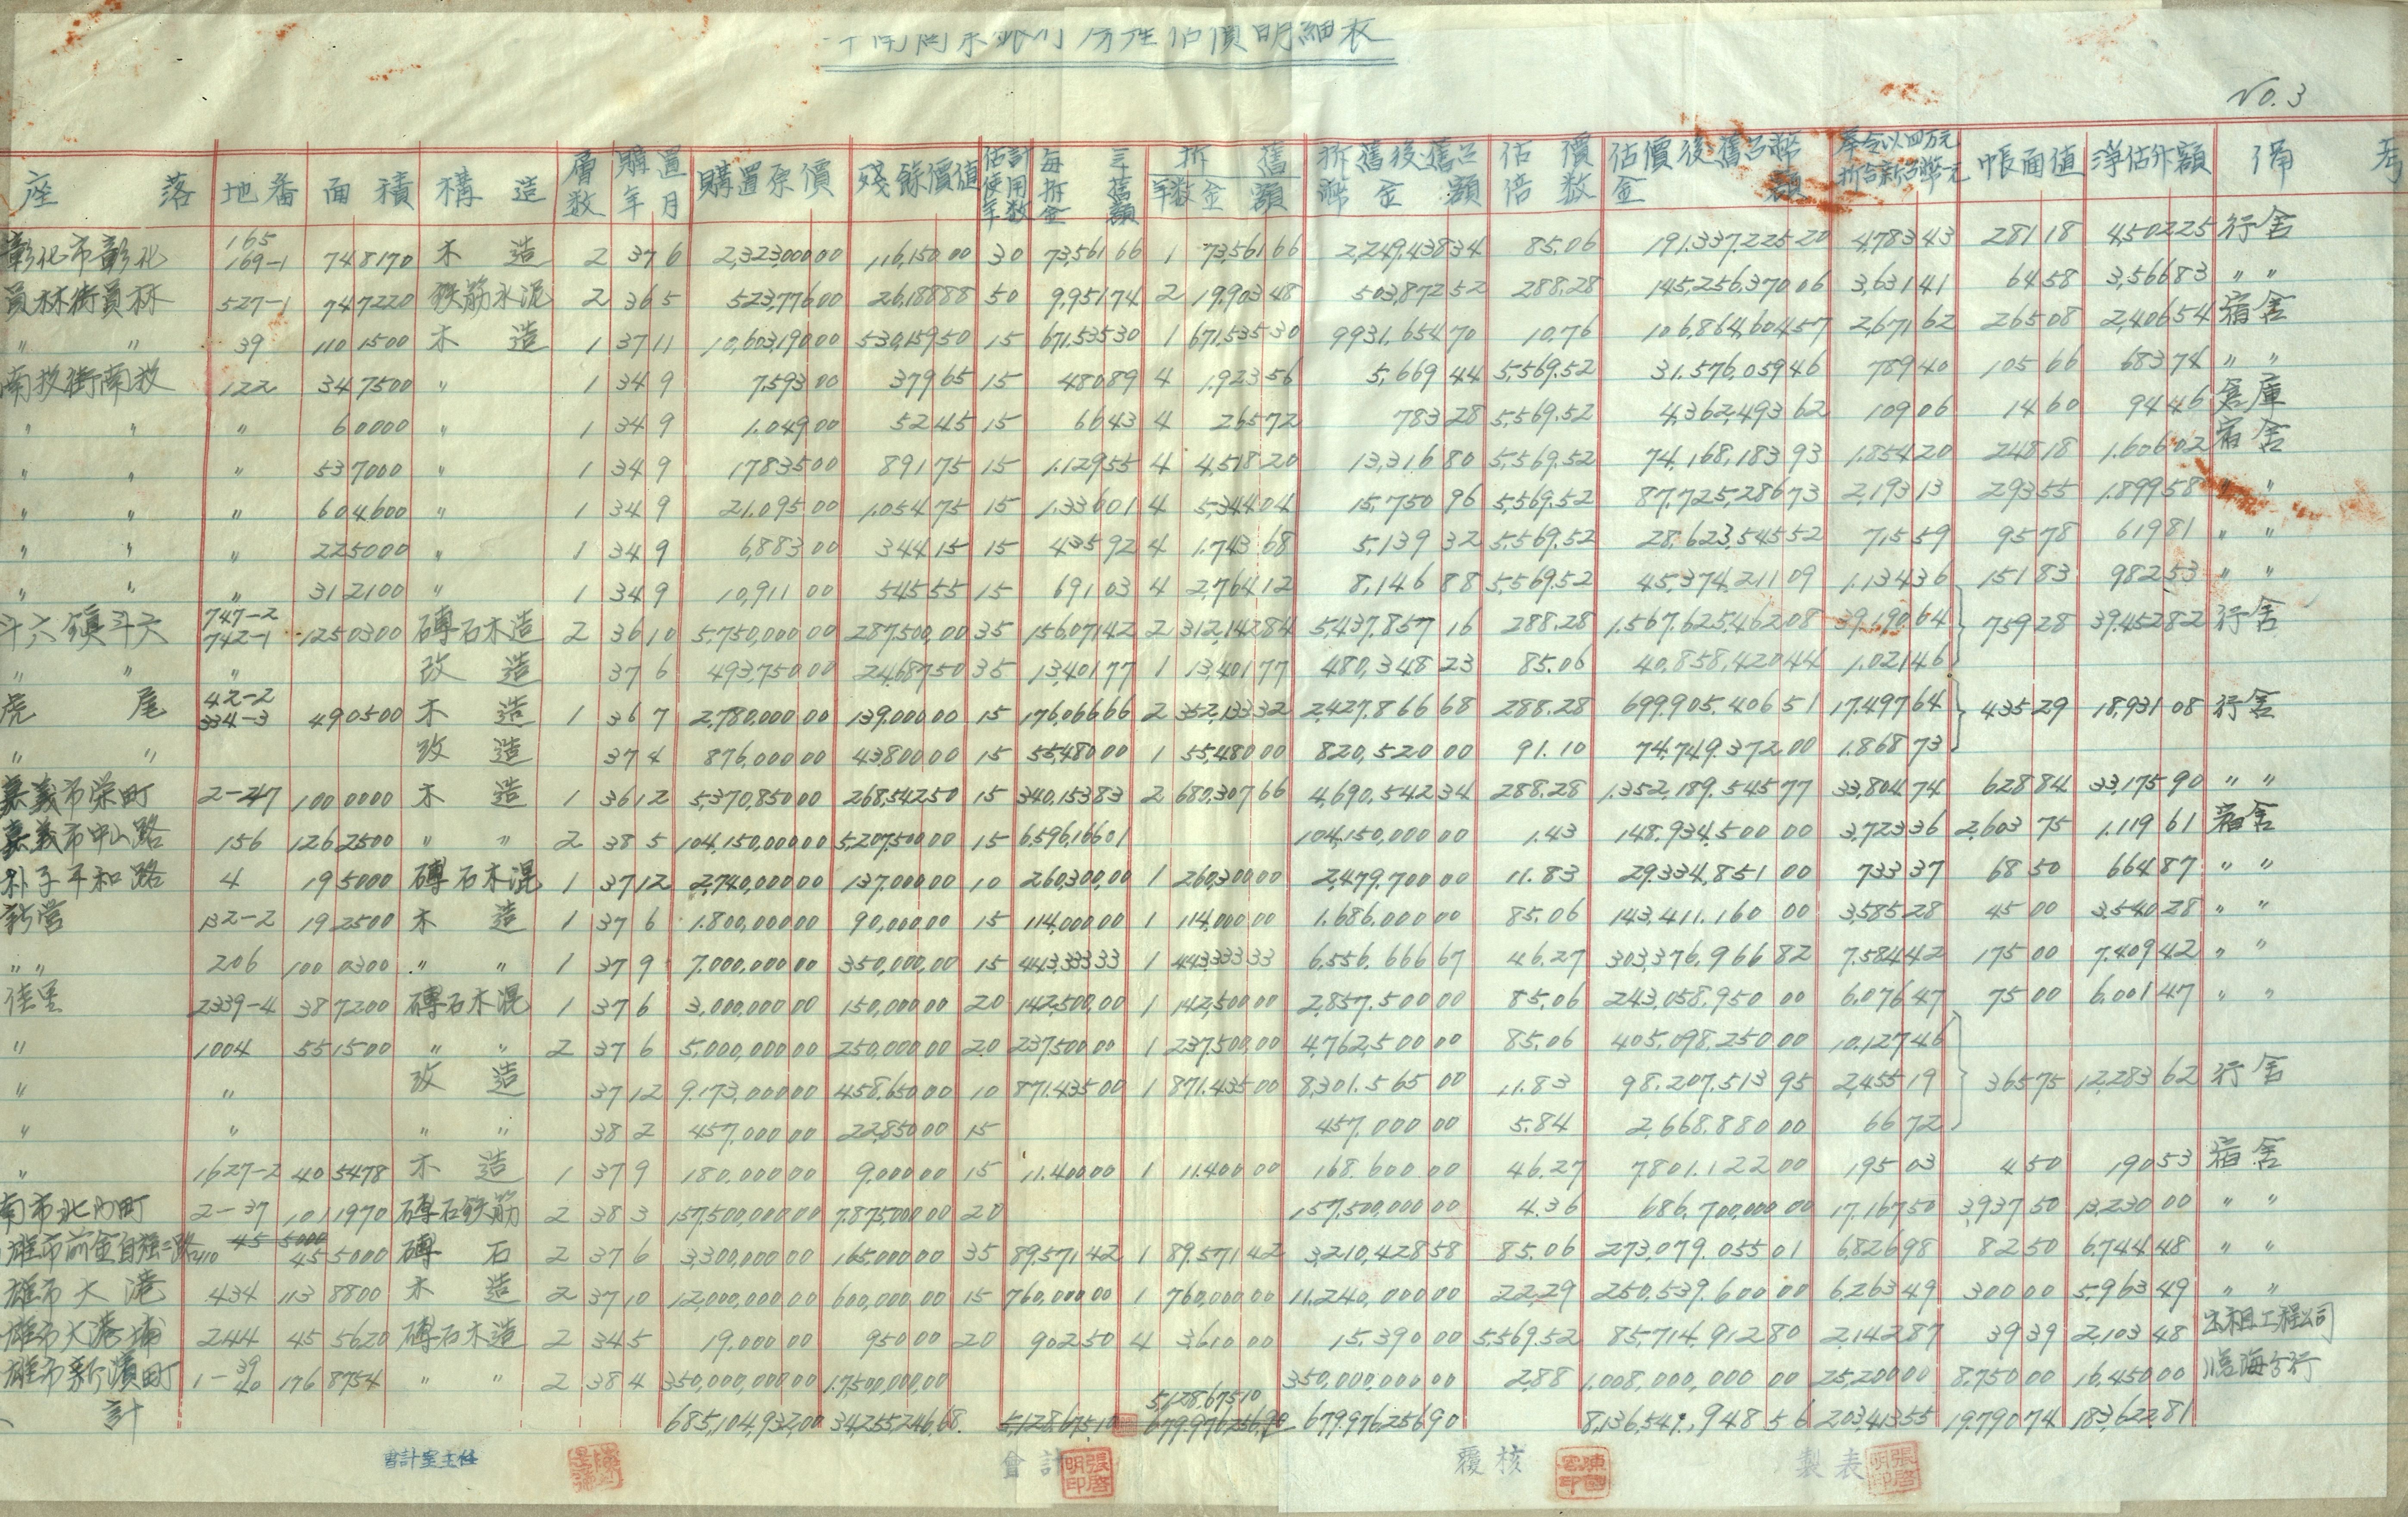 估價明細表
No. 3
座落 地番 面積 構造 層數 購置年月 購置原價 殘餘價值 估計使用年数 每年折舊金額 折舊年数 金額 折舊後舊台幣金額 估價倍数 估價後舊台幣金額 奉令以四万元折合新台幣一元 帳面值 淨估外額 備考
彰化市彰化 165 169-1 748170 木造 2 37 6 2,323,000 00 116,150 00 30 73,561 66 1 73,561 66 2,249,438 34 85.06 191.337,225 20 4,783 43 281 18 4,502 25 行舍
員林街員林 527-1 747220 鉄筋水泥 2 36 5 523,776 00 26,188 88 50 9,951 74 2 19,903 48 503,872 52 288.28 145,256,370 06 3,631 41 64 58 3,566 83 〃 〃
〃 〃 39 110 1500 木造 1 37 11 10,603,190 00 530,159 50 15 671,535 30 1 671,535 30 9931,654 70 10.76 106,864,604 57 2,671 62 265 08 2,406 54 宿舍
南投街南投 122 347500 〃 1 34 9 7,593 00 379 65 15 480 89 4 1,923 56 5,669 44 5,569.52 31.576,059 46 789 40 105 66 683 74 〃 〃
〃 〃 〃 60000 〃 1 34 9 1.049 00 52 45 15 66 43 4 265 72 783 28 5,569.52 4,362,493 62 109 06 14 60 94 46 倉庫
〃 〃 〃 537000 〃 1 34 9 17835 00 891 75 15 1.129 55 4 4,518 20 13,316 80 5,569.52 74,168,183 93 1.854 20 248 18 1.606 02 宿舍
〃 〃 〃 604600 〃 1 34 9 21.095 00 1.054 75 15 1.336 01 4 5,344 04 15,750 96 5,569.52 87,725,286 73 2,193 13 293 55 1.899 58 〃 〃
〃 〃 〃 225000 〃 1 34 9 6,883 00 344 15 15 435 92 4 1.743 68 5,139 32 5,569.52 28,623,545 52 715 59 95 78 619 81 〃 〃
〃 〃 〃 312100 〃 1 34 9 10,911 00 545 55 15 691 03 4 2,764 12 8,146 88 5,569.52 45,374,211 09 1.134 36 151 83 982 53 〃 〃
斗六鎮斗六 747-2 742-1 1250300 磚石木造 2 36 10 5,750,000 00 287,500,00 35 156071 42 2 312,142 84 5,437,857 16 288.28 1.567,625,462 08 39,190,64 759 28 39,452 82 行舍
〃 〃 〃 改造 37 6 493,750 00 24,687 50 35 13,401 77 1 13,401 77 480,348 23 85.06 40,858,420 44 1.021 46
虎尾 42-2 334-3 490500 木造 1 36 7 2,780,000 00 139,000 00 15 176,066 66 2 352,133 32 2,427,866 68 288.28 699,905,406 51 17,497 64 435 29 18,931 08 行舍
〃 〃 改造 37 4 876,000 00 43,800 00 15 55,480 00 1 55,480 00 820,520 00 91.10 74,749,372 00 1.868 73
嘉義市栄町 2-247 100 0000 木造 1 36 12 5,370,850 00 268,542 50 15 340,153 83 2 680,307 66 4,690,542 34 288.28 1.352,189,545 77 33,804 74 628 84 33,175 90 〃 〃
嘉義市中山路 156 126 2500 〃 〃 2 38 5 104,150,000 00 5,207,500 00 15 6,596,166 01 104,150,000 00 1.43 148,934,500 00 3,723 36 2,603 75 1.119 61 宿舍
朴子平和路 4 19 5000 磚石木混 1 37 12 2,740,000 00 137,000 00 10 260,300,00 1 260,300 00 2,479,700 00 11.83 29,334,851 00 733 37 68 50 664 87 〃 〃
新営 132-2 19 2500 木造 1 37 6 1.800,000 00 90,000 00 15 114,000 00 1 114,000 00 1.686,000 00 85.06 143,411,160 00 3,585 28 45 00 3,540 28 〃 〃
〃 〃 206 100 0300 〃 〃 1 37 9 7,000,000 00 350,000,00 15 443,333 33 1 443,333 33 6,556,666 67 46.27 303,376,966 82 7,584 42 175 00 7,409 42 〃 〃
佳里 2339-4 387200 磚石木混 1 37 6 3,000,000 00 150,000 00 20 142,500,00 1 142,500 00 2,857,500 00 85.06 243,058,950 00 6,076 47 75 00 6,001 47 〃 〃
〃 1004 551500 〃 〃 2 37 6 5,000,000 00 250,000 00 20 237,500 00 1 237,500,00 4,762,500 00 85.06 405,098,250 00 10,127 46
〃 〃 改造 37 12 9,173,000 00 458,650 00 10 871,435 00 1 871,435 00 8,301,565 00 11.83 98,207,513 95 2,455 19 365 75 12,283 62 行舍
〃 〃 〃 〃 38 2 457,000 00 22,850 00 15 457,000 00 5.84 2,668,880 00 66 72
〃 1627-2 40 5478 木造 1 37 9 180,000 00 9,000 00 15 11,400 00 1 11.400 00 168,600 00 46.27 7,801,122 00 195 03 4 50 190 53 宿舍
南市北門町 2-37 101 1970 磚石鉄筋 2 38 3 157,500,000 00 7,875,000 00 20 157,500,000 00 4.36 686,700,000 00 17,167 50 3,937 50 13,230 00 〃 〃
雄市前金自強二路 210 45 5000 磚石 2 37 6 3,300,000 00 165,000 00 35 89,571 42 1 89,571 42 3,210,428 58 85.06 273,079,055 01 6,826 98 82 50 6,744 48 〃 〃
雄市大港 434 113 8800 木造 2 37 10 12,000,000 00 600,000 00 15 760,000 00 1 760,000 00 11,240,000 00 22.29 250,539,600 00 6,263 49 300 00 5,963 49 〃 〃
雄市大港埔 244 45 5620 磚石木造 2 34 5 19,000 00 950 00 20 902 50 4 3,610 00 15,390 00 5,569.52 85,714,912 80 2,142 87 39 39 2,103 48 出租工程公司
雄市新濱町 1-39 40 176 8754 〃 〃 2 38 4 350,000,000 00 1.7500,000,00 350,000,000 00 2.88 1.008,000,000 00 25,200 00 8,750 00 16,450 00 臨海分行
計 685,104,932,00 34,255,246,68 5,128,675,10 679,976,256,90 5,128,675 10 679,976,256 90 8,136,549,948 56 203,413 55 19,790 74 183,622 81
會計室主任 會計 張啓明印 覆核 製表 張啓明印